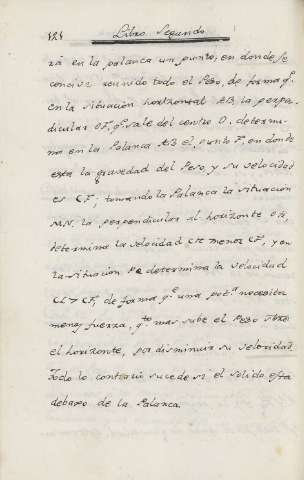 124 Libro Segundo
rá en la palanca un punto, en donde se
concive reunido todo el Peso, de forma q.e
en la situación horizontal AB, la perpen
dicular OF, q.e sale del centro O, determi
na en la Palanca AB el punto F, en donde
esta la gravedad del Peso, y su velocidad
es CF; tomando la Palanca la situación
MN, la perpendicular al horizonte OR,
determina la velocidad CR menor CF, y en
la situación determina la velocidad
CL > CF, de forma q.e una pot.a necesita
menos fuerza, q.to mas sube el Peso sbre
el horizonte, por disminuir su velocidad.
Todo lo contrario sucede si el solido esta
debaxo de la Palanca.